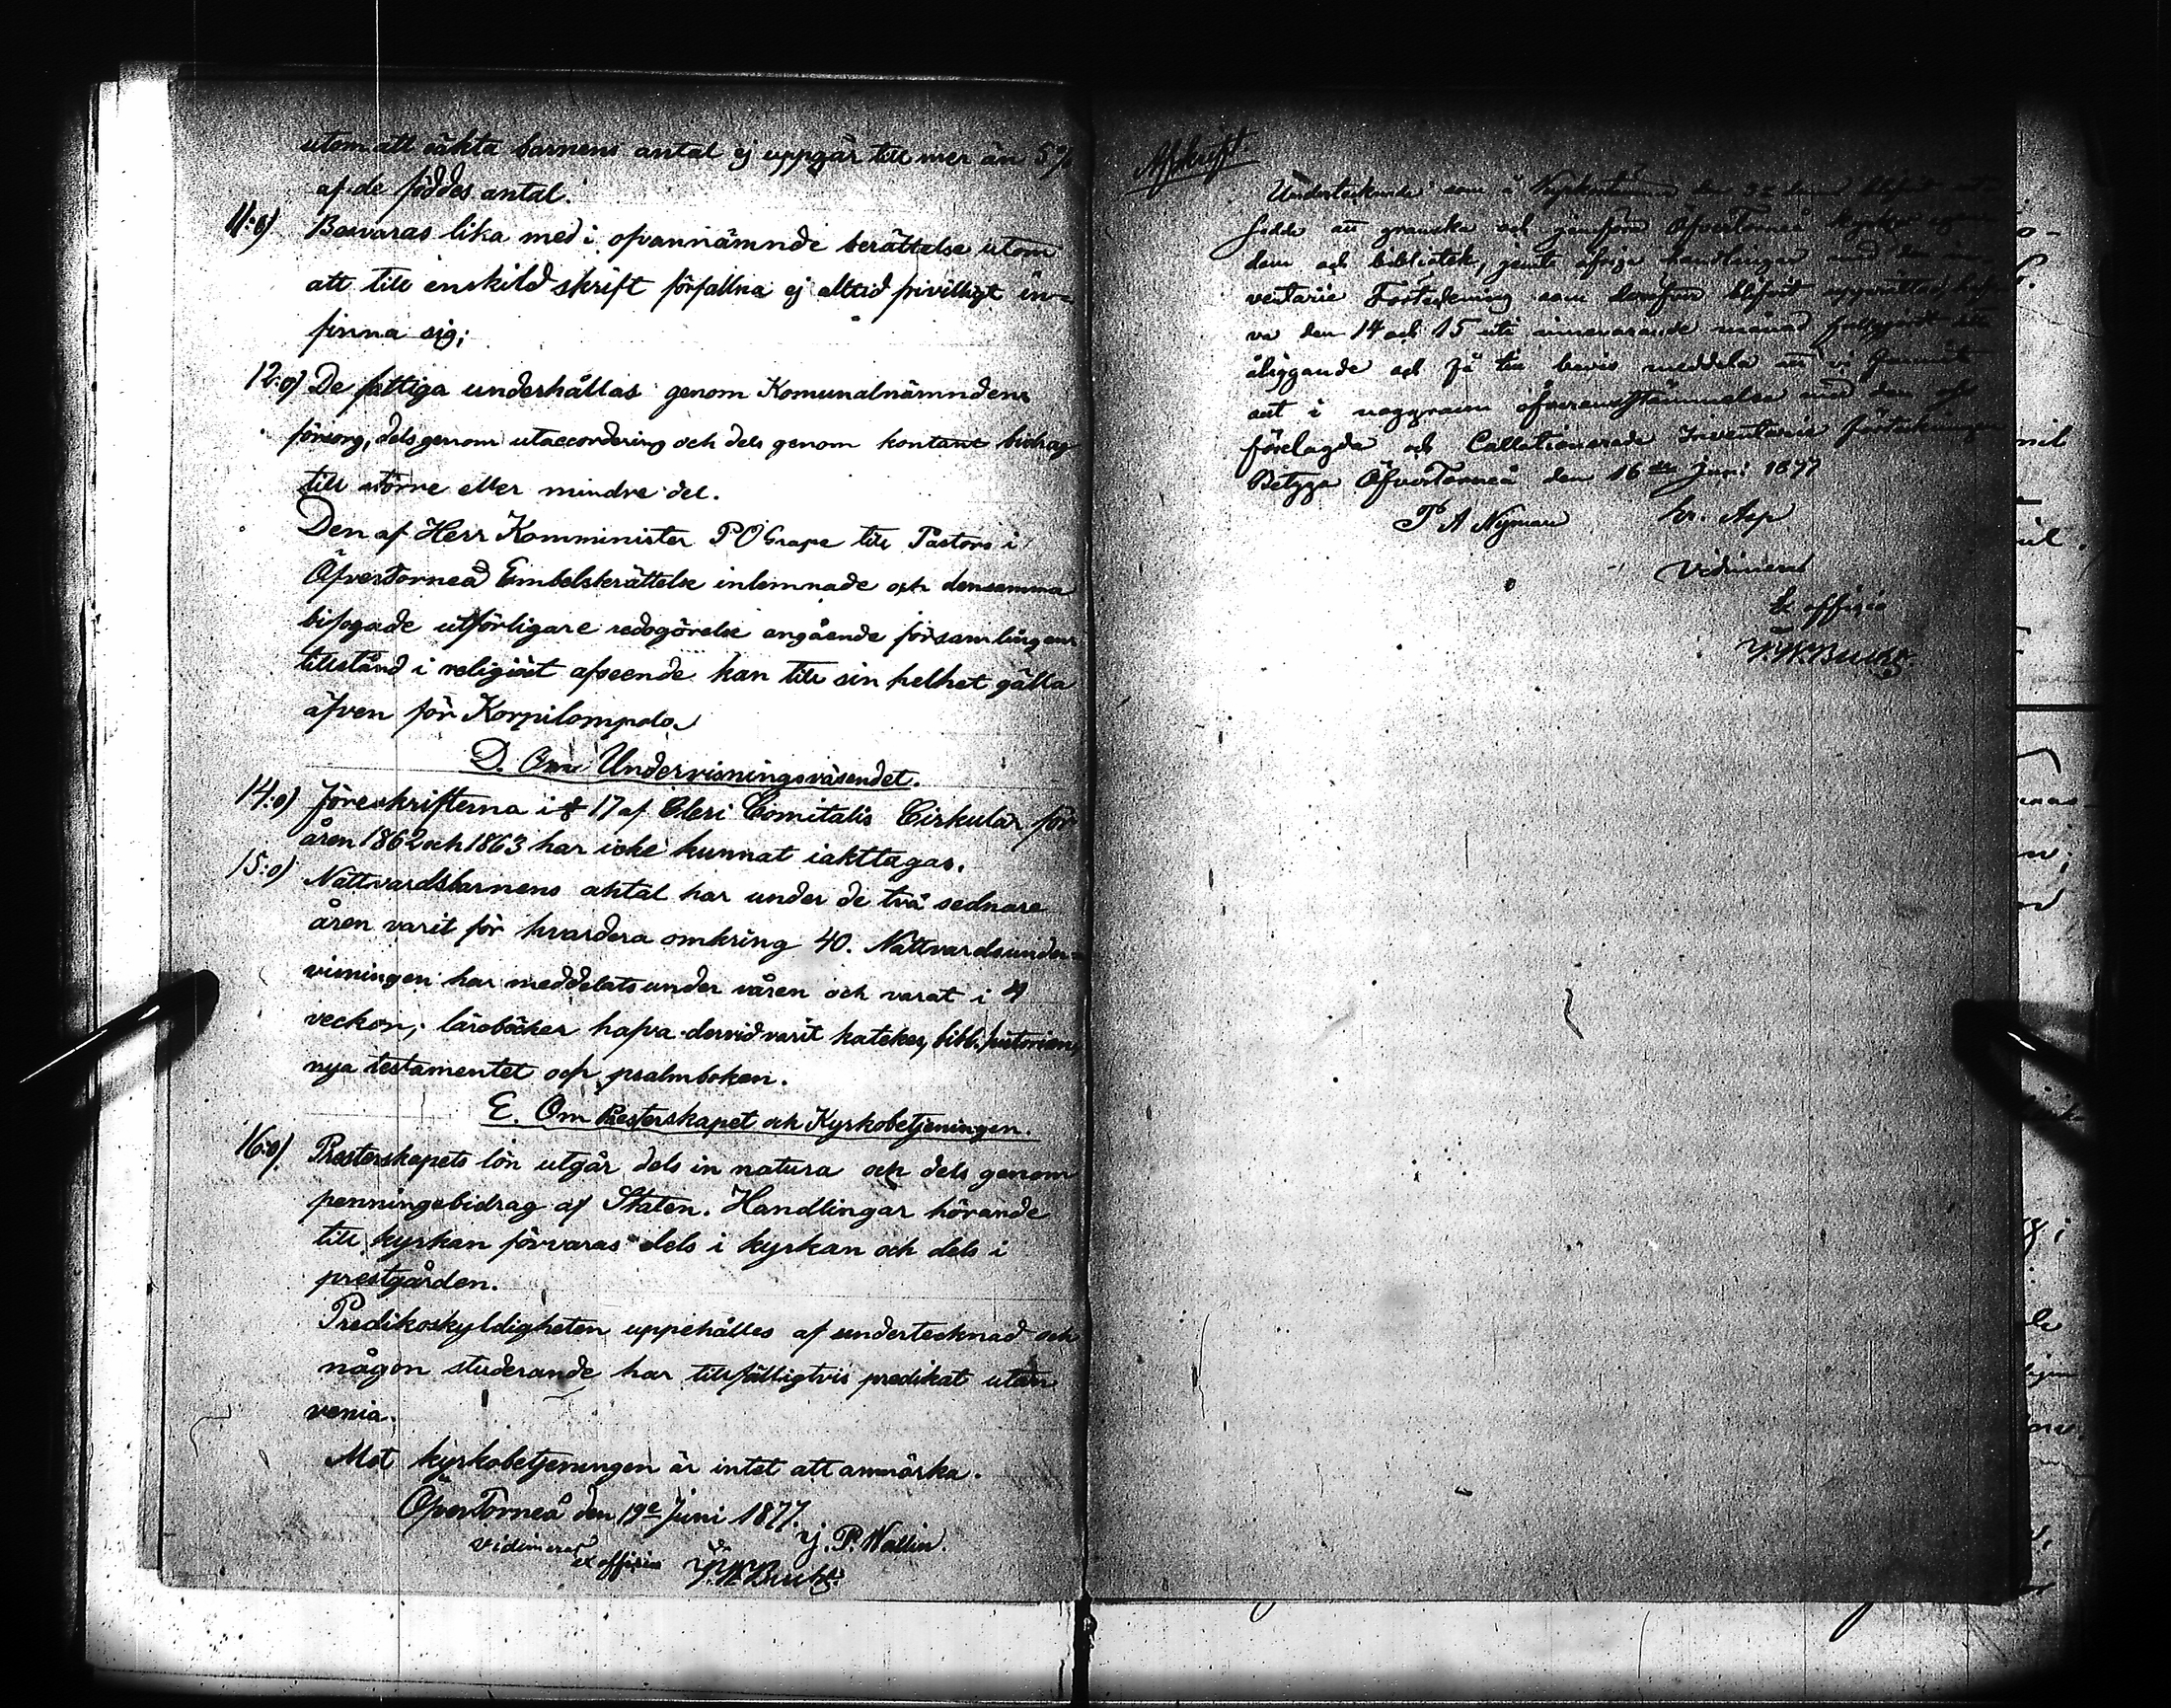 utom att oäkta barnens antal ej uppgår till mer än 5%
af de föddes antal.
11:o) Besvaras lika med i ofvannämnde berättelse utom
att till enskild skrift förfallna ej alltid frivilligt in-
finna sig;
12:o) De fattiga underhållas genom Komunalnämndens
försorg, dels genom utaccordering och dels genom kontant bidrag
till större eller mindre del.
Den af Herr Komminister P O Grape till Pastorn i
ÖfverTorneå Embetsberättelse inlemnade och densamma
bifogade utförligare redogörelse angående församlingens
tillstånd i religiöst afseende kan till sin helhet gälla
äfven för Korpilompolo.
D. Om Undervisningsväsendet.
14:o) Föreskrifterna i § 17 af Cleri Comitalis Cirkulär för
åren 1862 och 1863 har icke kunnat iakttagas.
15:o) Nattvardsbarnens antal har under de två sednare
åren varit för hvardera omkring 40. Nattvardsunder-
visningen har meddelats under våren och varat i 4
veckor; läroböcker hafva dervid varit katekes, bibl. historien,
nya testamentet och psalmboken.
E. Om Presterskapet och Kyrkobetjeningen.
16:o) Presterskapets lön utgår dels in natura och dels genom
penningebidrag af Staten. Handlingar hörande
till kyrkan förvaras dels i kyrkan och dels i
prestgården.
Predikoskyldigheten uppehålles af undertecknad och
någon studerande har tillfälligtvis predikat utan
venia.
Mot kyrkobetjeningen är intet att anmärka.
ÖfverTorneå den 19e Juni 1877.
J. P. Wallin.
Vidimerat
ex officio
Afskrift
Undertecknade som å Kyrkostämma den
sedde att granska och jemföra ÖfverTorneå kyrkas egen
dom och bibliotek, jemte öfriga handlingar med den in-
ventarie Förteckning som deröfver blifvit upprättad, haf
va den 14 och 15 uti innevarande månad fullgjordt
åliggande och få till bevis meddela att vi funnit
allt i noggrann öfverensstämmelse med den oss
förelagda och Collationerade Inventarie förteckningen
Betyga ÖfverTorneå den 16de Juni 1877
P A Nyman Asp
Vidimerat
Ex officio